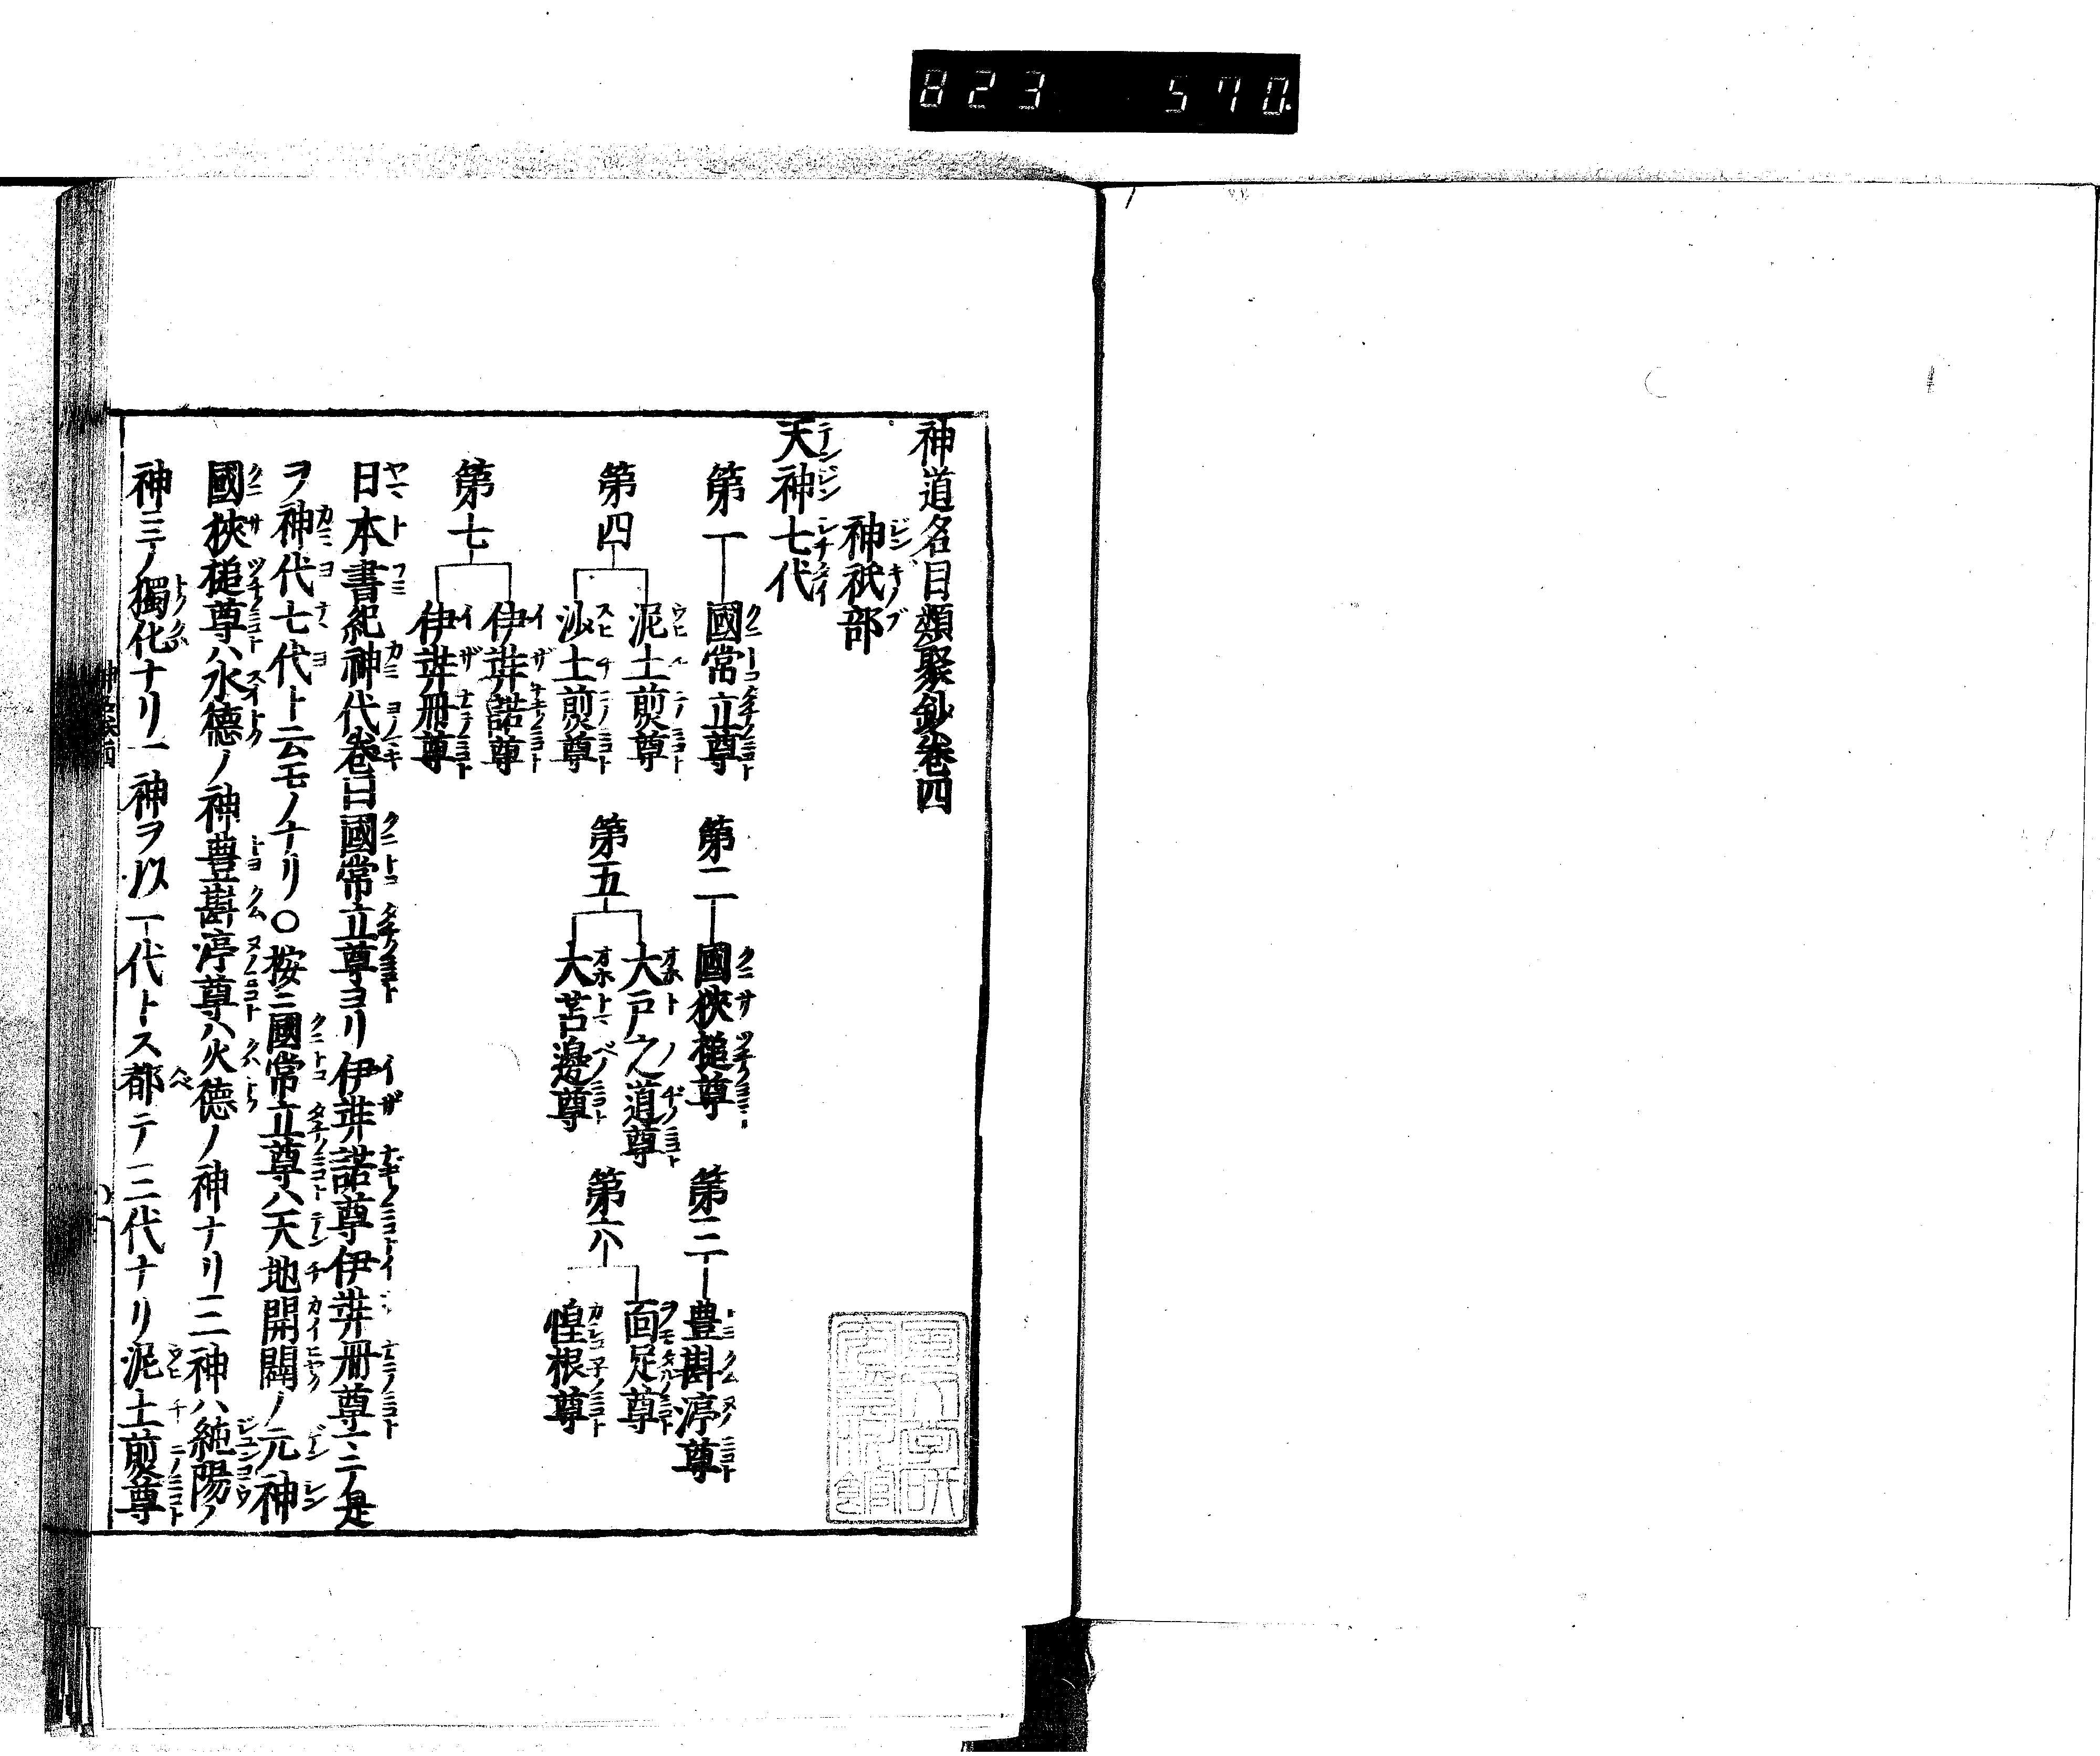 823 570
神道名目類聚鈔卷四
神祇部
天神七代
第一 國常立尊 第二 國狹槌尊 第三 豊斟渟尊
第四 泥土煑尊 沙土煑尊 第五 大戸之道尊 大苫邊尊 第六 面足尊 惶根尊
第七 伊弉諾尊 伊弉冊尊
日本書紀神代卷曰國常立尊ヨリ伊弉諾尊伊弉冊尊ニ是
ヲ神代七代ト云モノナリ○按ニ國常立尊ハ天地開闢ノ元神
國狹槌尊ハ水德ノ神豊斟渟尊ハ火德ノ神ナリ三神ハ純陽ノ
神ニテ獨化ナリ一神ヲ以一代トス都テ三代ナリ泥土煑尊